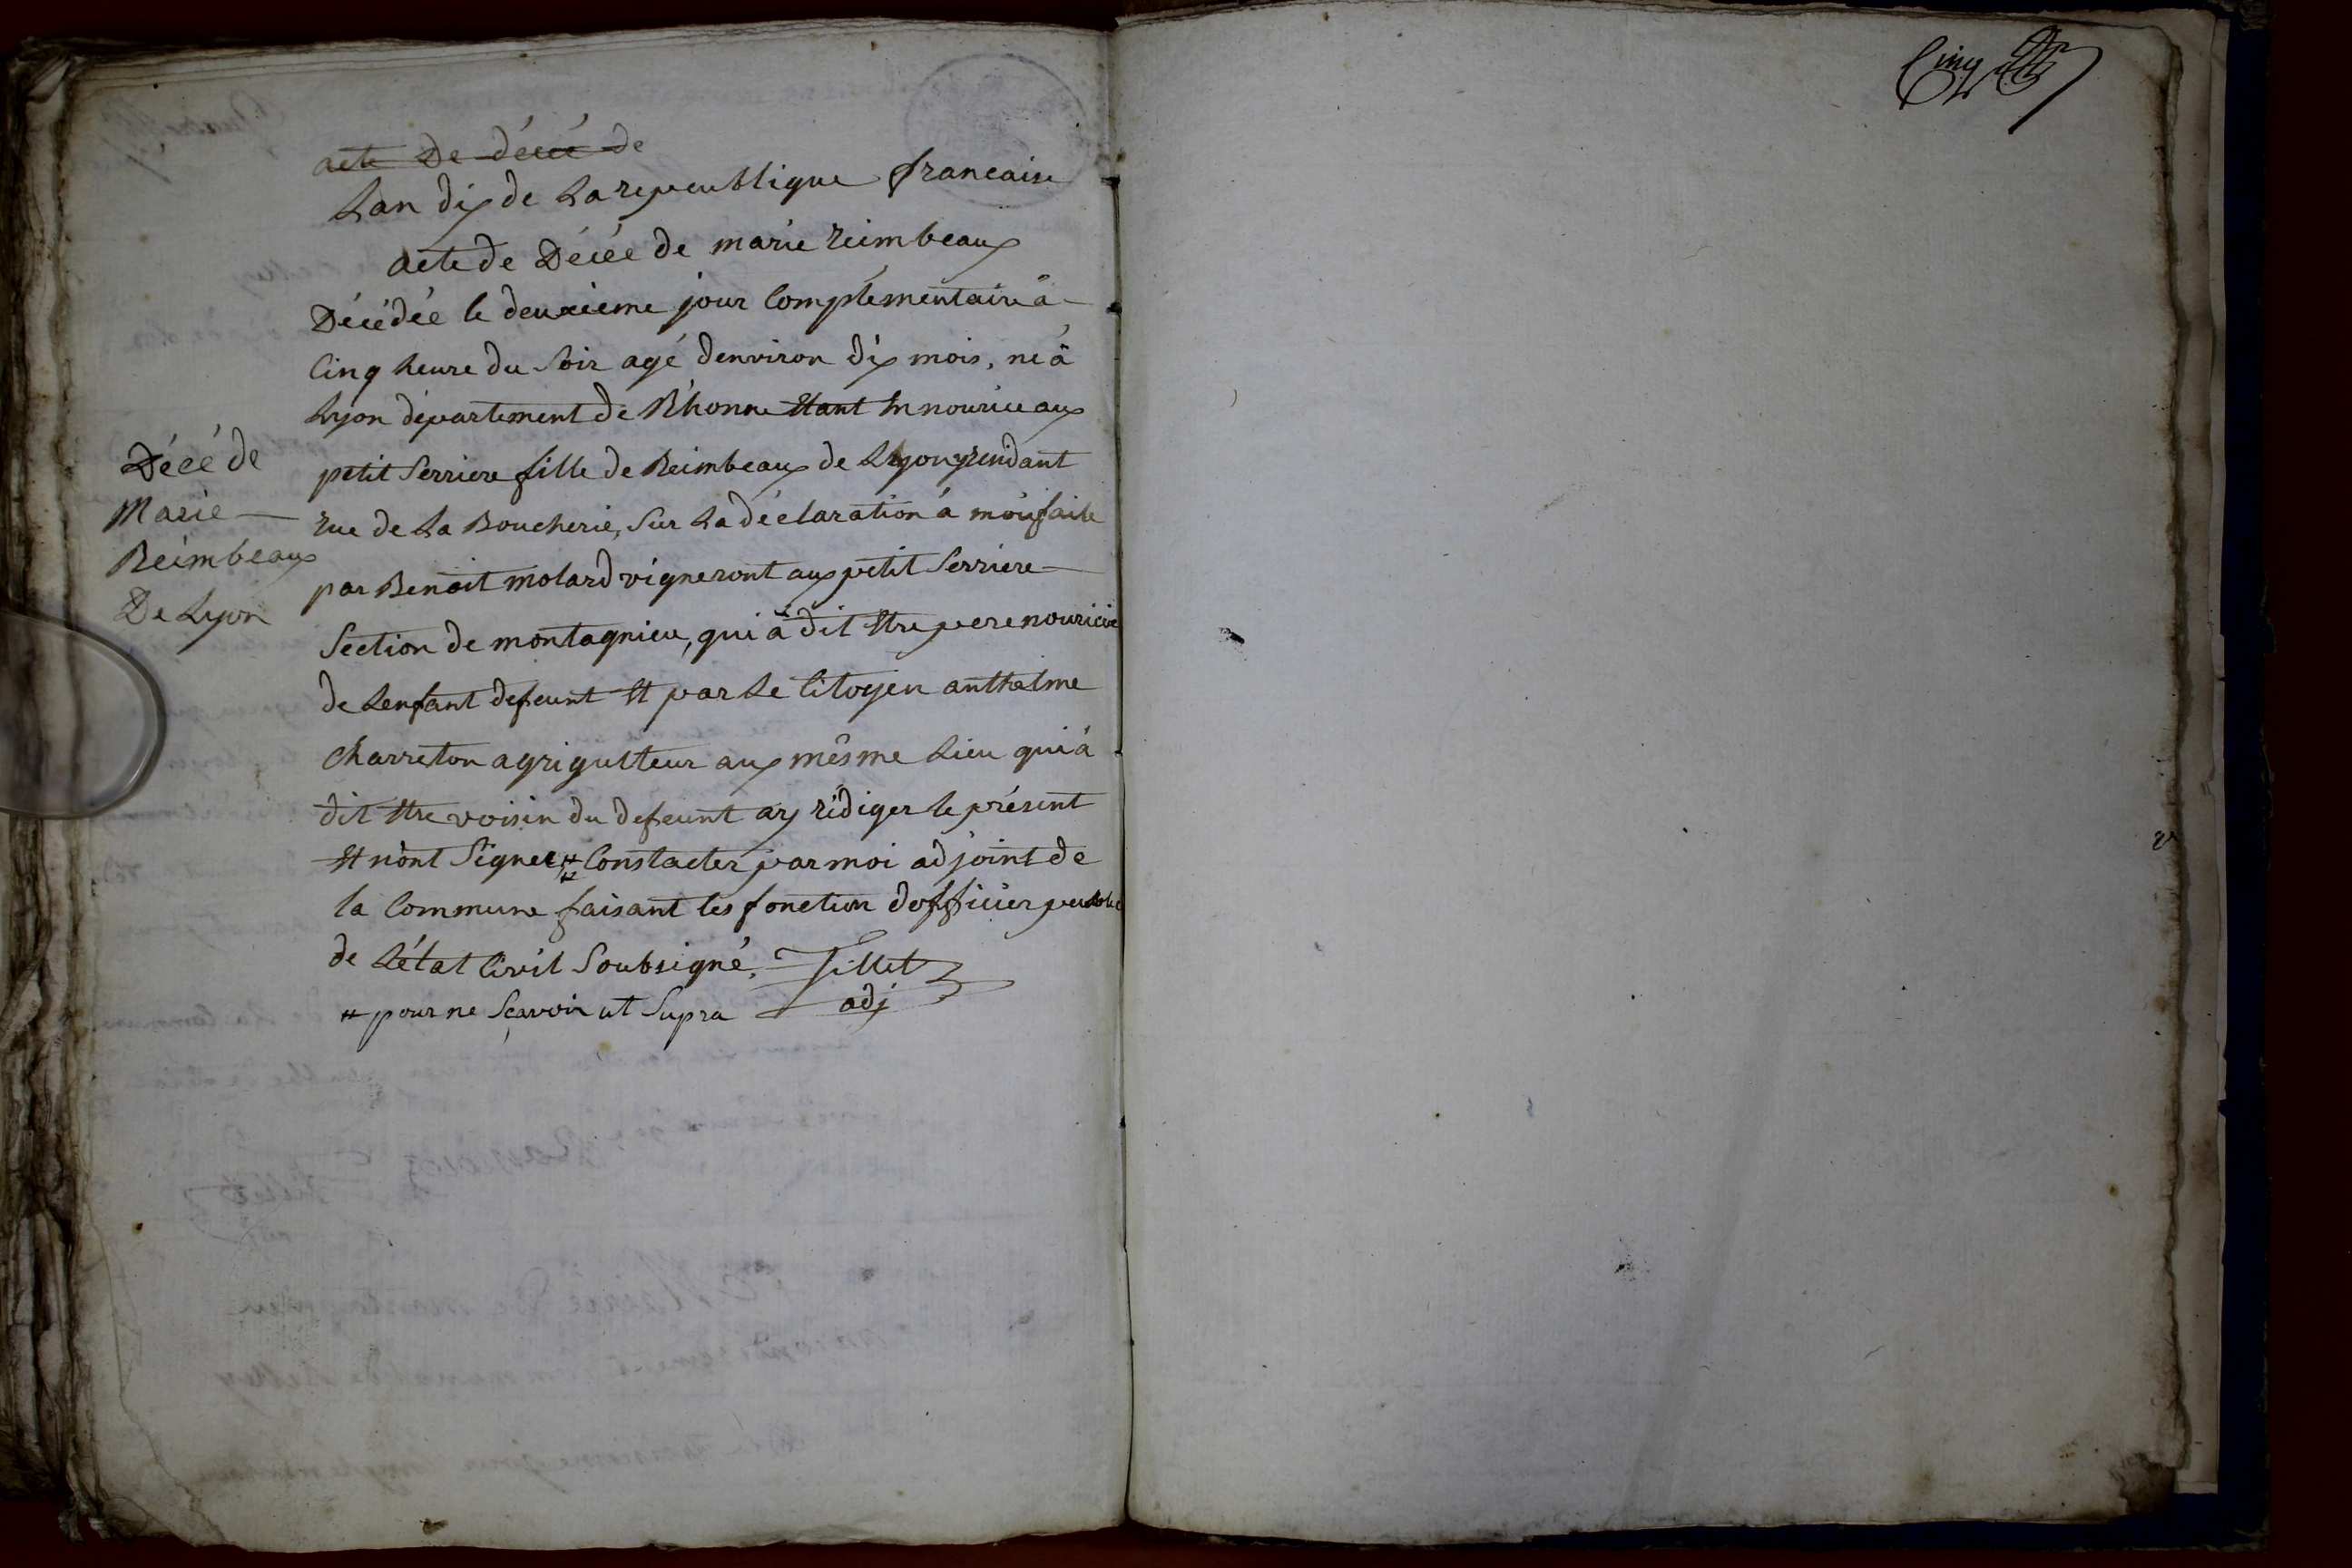 acte De décé de
Lan dix de La repeublique francaise
acte de Décée de marie reimbeaux
Décédée le deuxieme jour Complémentaire à
Cinq heure du Soir agé denviron dix mois, né à
Lyon département de Rhonne Etant En nourice aux
petit Serriere fille de Reimbeaux de Lÿon
rue de La Boucherie, Sur La déclaration á moi faite
par Benoit molard vigneront aux petit Serriere
Section de montagnieu, qui à dit Etre pere nouricie
de Lenfant defeunt Et par Le Citoyen anthelme
Charreton agrigulteur aux mêsme Lieu qui à
dit Etre voisin du defeunt ay rédiger le présent
Et n'ont Signer # Constacter par moi adjoint de
la Commune faisant les fonction dofficier peublic
de L'état Civil Soubsigné. Tillet
adj
# pour ne Sçavoir ut Supra
Décé de
Marie
Reimbeaux
De Lyon
Cinq